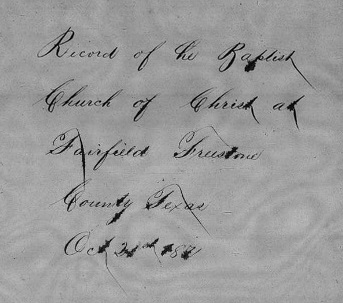 Record of the Baptist
Church of Christ at
Fairfield Freestone
County Texas
Oct